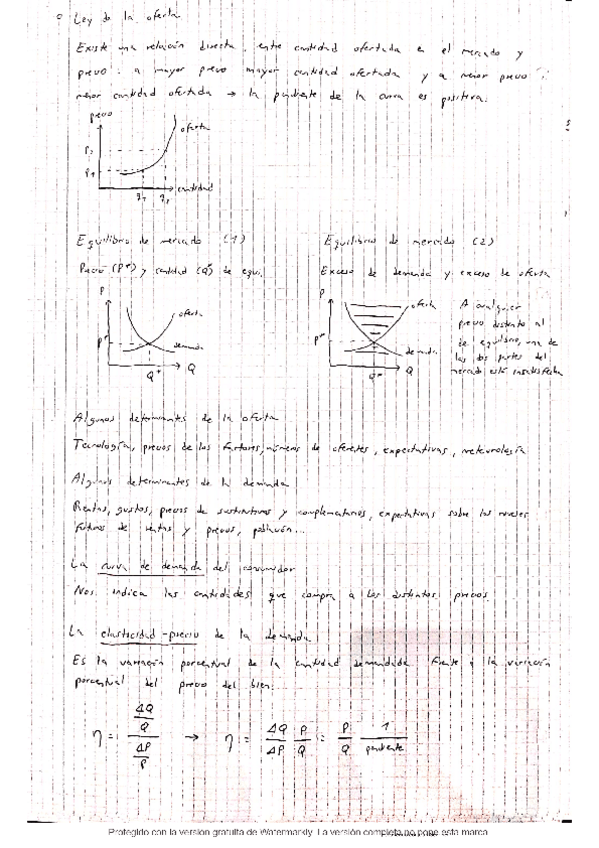 o Ley de la oferta
Existe una relación directa entre cantidad ofertada en el mercado y
precio: a mayor precio mayor cantidad ofertada y a menor precio
menor cantidad ofertada → la pendiente de la curva es positiva.
precio
oferta
P2
P1
cantidad
q1 q2
Equilibrio de mercado (1)
Equilibrio de mercado (2)
Precio (P*) y cantidad (Q*) de equi.
Exceso de demanda y exceso de oferta
P
oferta
P*
demanda
Q*
Q
P
oferta
P*
demanda
Q*
Q
A cualquier
precio distinto al
de equilibrio, una de
las dos partes del
mercado está insatisfecha
Algunos determinantes de la oferta
Tecnología, precios de los factores, números de oferentes, expectativas, meteorología
Algunos determinantes de la demanda
Rentas, gustos, precios de sustitutivos y complementarios, expectativas sobre los niveles
futuros de rentas y precios, población...
La curva de demanda del consumidor
Nos indica las cantidades que compra a los distintos precios.
La elasticidad-precio de la demanda
Es la variación porcentual de la cantidad demandada frente a la variación
porcentual del precio del bien.
η = ΔQ/Q / ΔP/P → η = ΔQ/ΔP P/Q = P/Q 1/pendiente
Protegido con la versión gratuita de Watermarkly. La versión completa no pone esta marca.